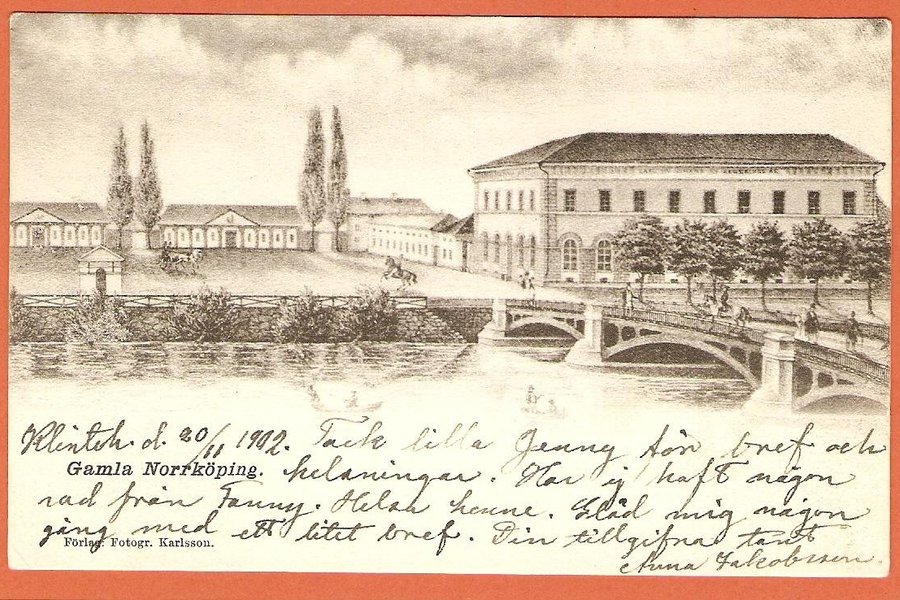 Klinteh. d. 20/11 1902. Tack lilla Jenny för bref och
Gamla Norrköping. helsningar. Har ej haft någon
rad från Fanny. Helsa henne. Gläd mig någon
gång med ett litet bref. Din tillgifna tant
Förlag: Fotogr. Karlsson.
Anna Jakobsson.